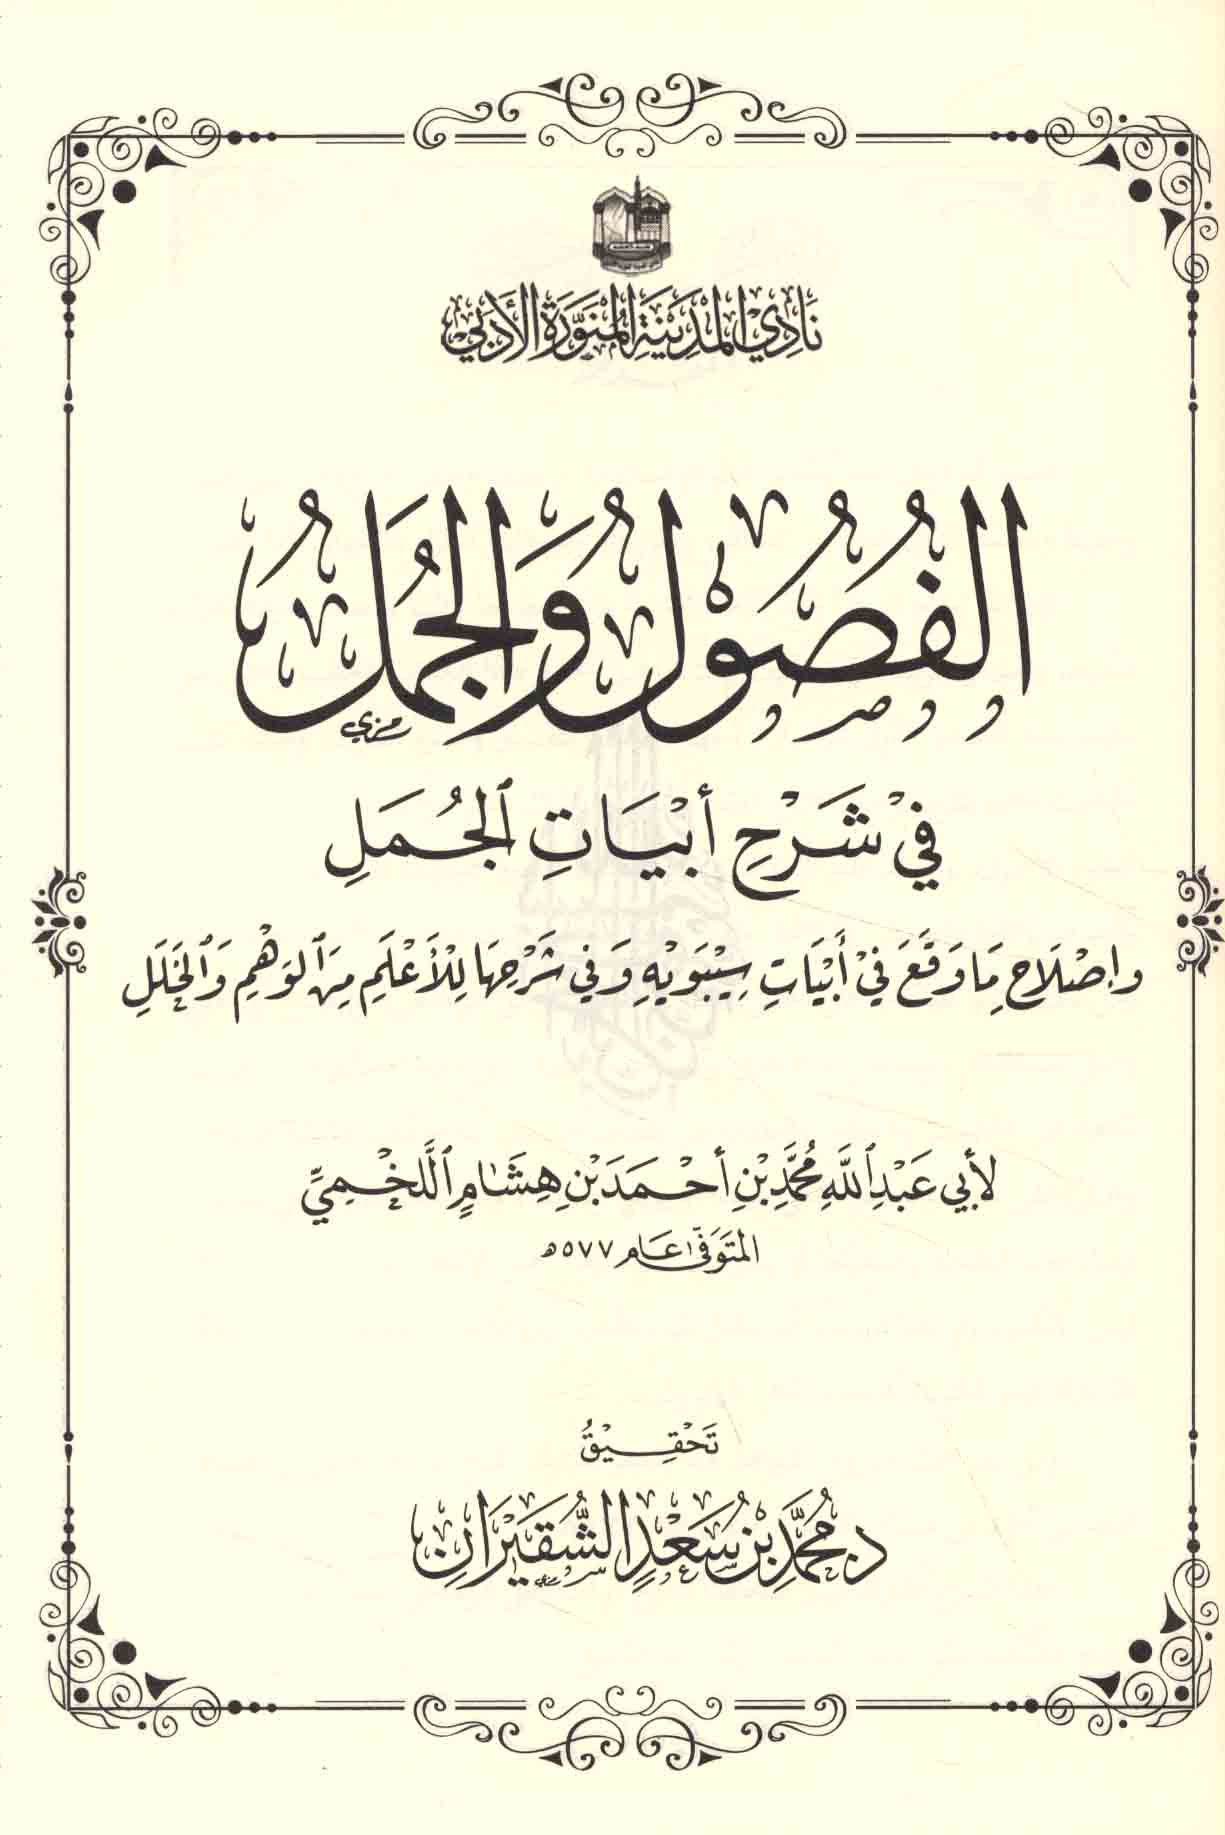 نَادِي الْمَدِيْنَةِ الْمُنَوَّرَةِ الْأَدَبِي
الفُصُوْلُ وَالجُمَلُ
فِيْ شَرْحِ أَبْيَاتِ الجُمَلِ
وإِصْلَاحِ مَا وَقَعَ فِيْ أَبْيَاتِ سِيْبَوَيْهِ وَفِي شَرْحِهَا لِلْأَعْلَمِ مِنَ الوَهْمِ وَالخَلَلِ
لأَبِي عَبْدِ اللَّهِ مُحَمَّدِ بْنِ أَحْمَدَ بْنِ هِشَامٍ اللَّخْمِيِّ
المتَوَفَّى عَام ٥٧٧هـ
تَحْقِيْقُ
د. مُحَمَّدِ بْنِ سَعْدٍ الشُّقَيْرَانِ